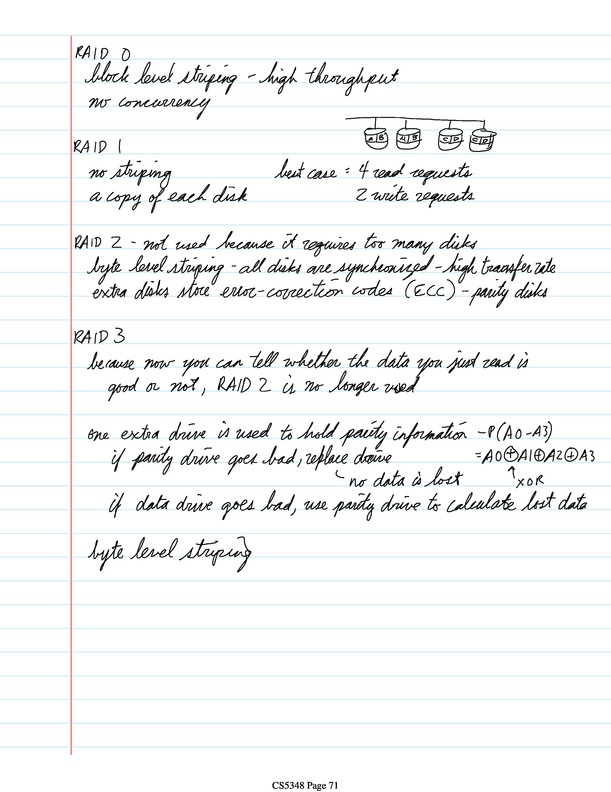 RAID 0
block level striping - high throughput
no concurrency
A B A B C D C D
RAID 1
no striping best case : 4 read requests
a copy of each disk 2 write requests
RAID 2 - not used because it requires too many disks
byte level striping - all disks are synchronized - high transfer rate
extra disks store error-correction codes (ECC) - parity disks
RAID 3
because now you can tell whether the data you just read is
good or not, RAID 2 is no longer used
one extra drive is used to hold parity information - P(A0-A3)
if parity drive goes bad, replace drive = A0⊕A1⊕A2⊕A3
no data is lost XOR
if data drive goes bad, use parity drive to calculate lost data
byte level striping
CS5348 Page 71